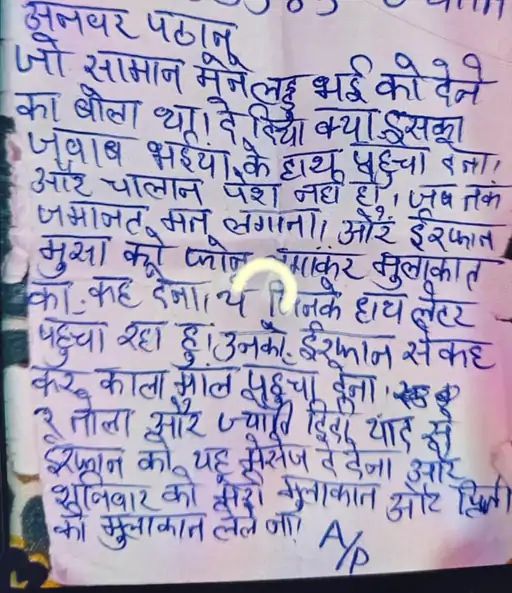 अनवर पठान
जो सामान मेने लड्डु भाई को देने
का बोला था। दे दिया क्या इसका
जवाब भईया के हाथ पहुचा देना।
और चालान पेश नही हो। जब तक
जमानट मत लगाना। और ईरफान
मुसा को फोन लगाकर मुलाकात
का कह देना। ये जिनके हाथ लेटर
पहुचा रहा हु। उनको ईरफान से कह
कर काला माल पहुचा देना।
२ तोला और ज्योति दिदी याद से
ईरफान को यह मेसेज दे देना और
शनिवार को मेरी मुलाकात और
की मुलाकात लेले ना।
A/P